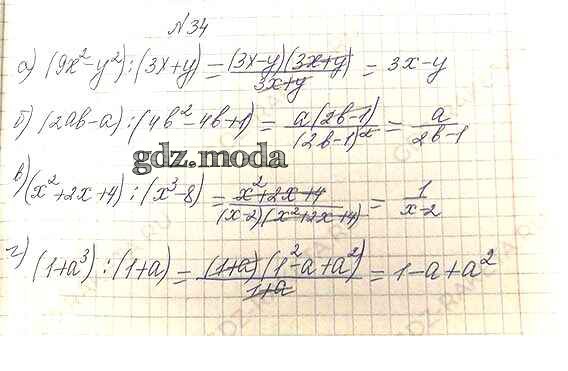 №34
а) (9x²-y²):(3x+y)=(3x-y)(3x+y)/3x+y=3x-y
б) (2ab-a):(4b²-4b+1)=a(2b-1)/(2b-1)²=a/2b-1
gdz.moda
в) (x²+2x+4):(x³-8)=x²+2x+4/(x-2)(x²+2x+4)=1/x-2
г) (1+a³):(1+a)=(1+a)(1²-a+a²)/1+a=1-a+a²